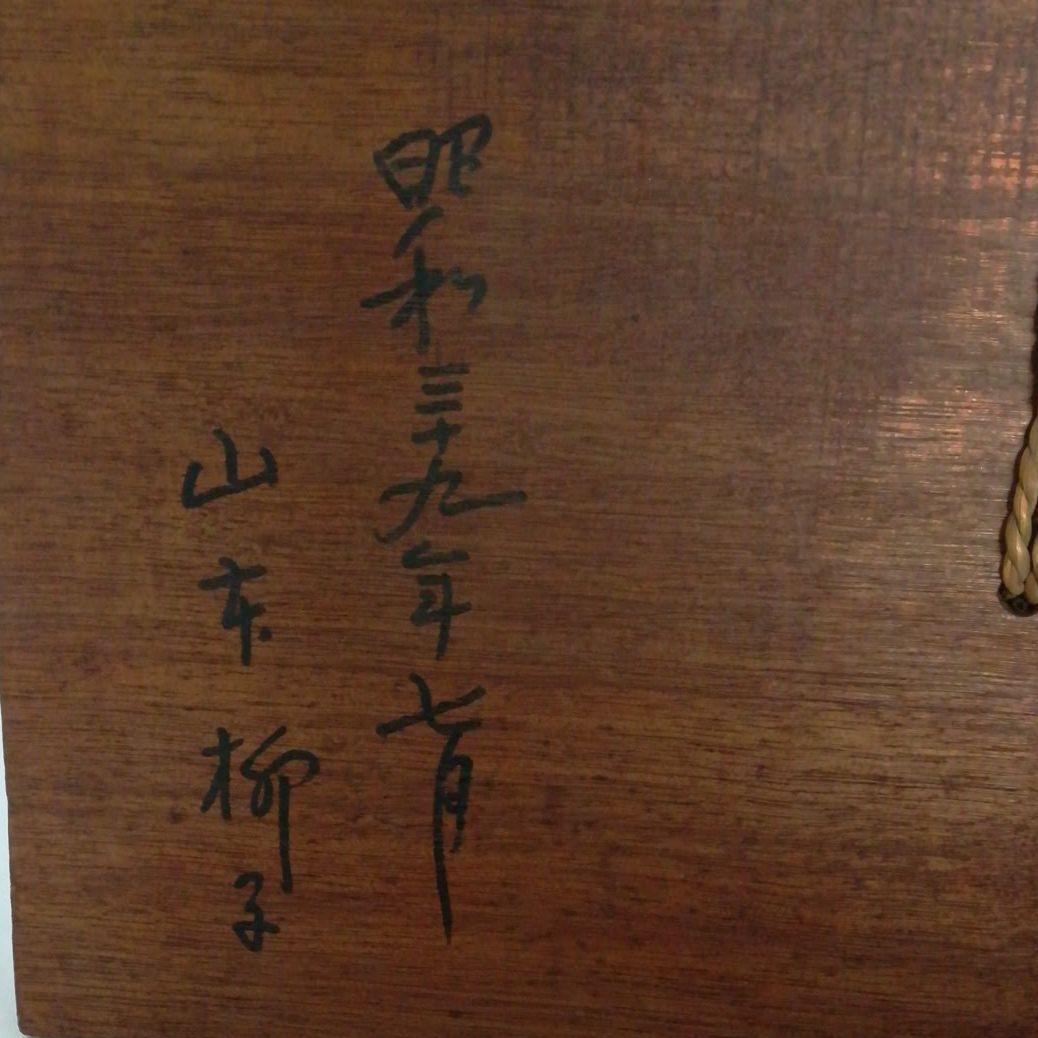 昭和三十九年七月
山本柳子